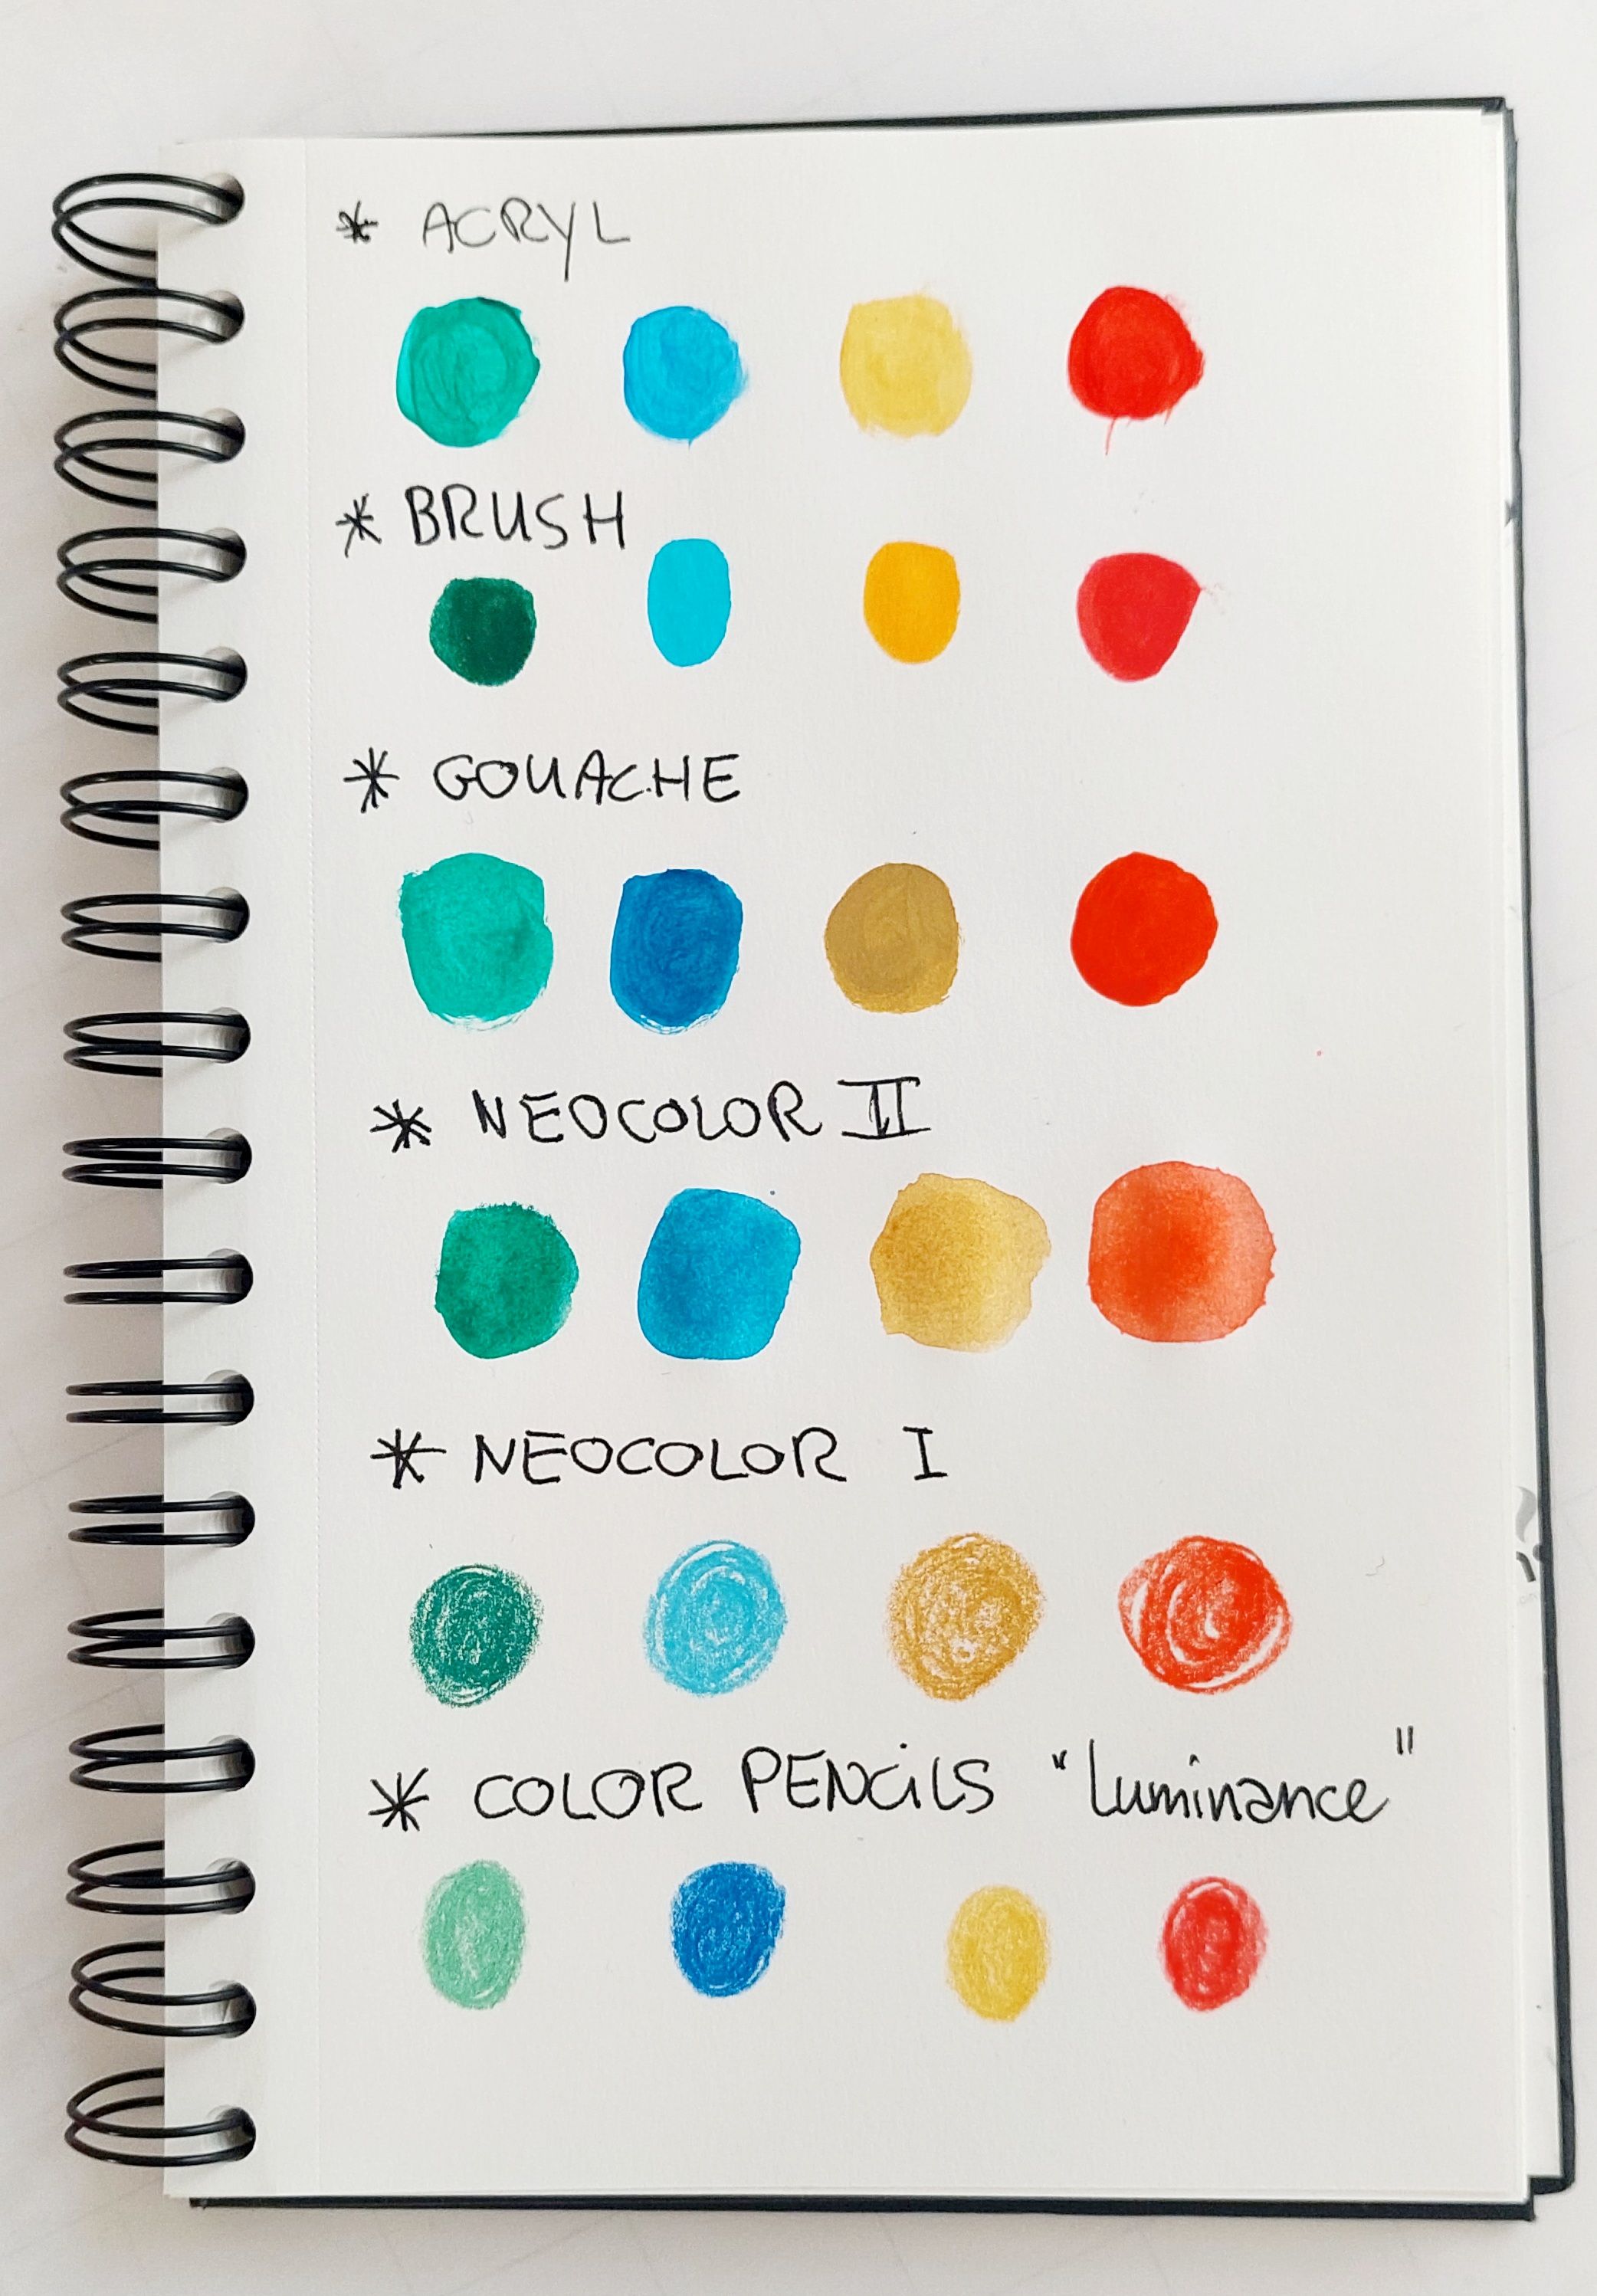 * ACRYL
* BRUSH
* GOUACHE
* NEOCOLOR II
* NEOCOLOR I
* COLOR PENCiLS "Luminance"